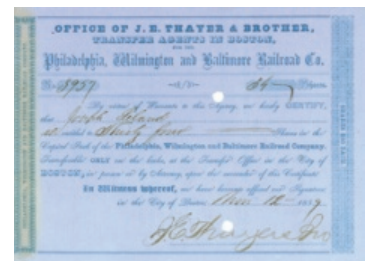 OFFICE OF J. E. THAYER & BROTHER,
TRANSFER AGENTS IN BOSTON,
FOR THE
Philadelphia, Wilmington and Baltimore Railroad Co.
No 3957 34 Shares
By virtue of to this Agency, we hereby CERTIFY,
that Joseph
is entitled to Thirty four Shares in the
Capital Stock of the Philadelphia, Wilmington and Baltimore Railroad Company.
Transferable ONLY on the books, at the Transfer Office in the City of
BOSTON, in person or by Attorney, upon the surrender of this Certificate.
In Witness whereof, we have hereunto affixed our Signature
in the City of Boston, 12 18
J. E. Thayer & Bro